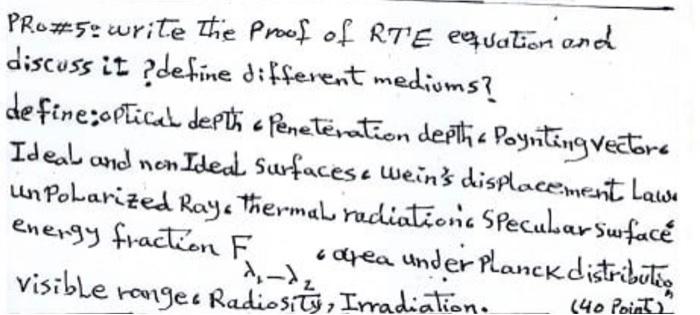 PRo#5: write The Proof of RTE eqvation and
discuss it ? define different mediums?
define: optical depth ‹ Peneteration depth ‹ Poynting vector ‹
Ideal and non Ideal surfaces ‹ wein's displacement Law ‹
unPolarized Ray ‹ Thermal radiation ‹ Specular surface ‹
energy fraction F λ₁-λ₂ ‹ area under Planck distribution
visible range ‹ Radiosity, Irradiation. (40 Point)